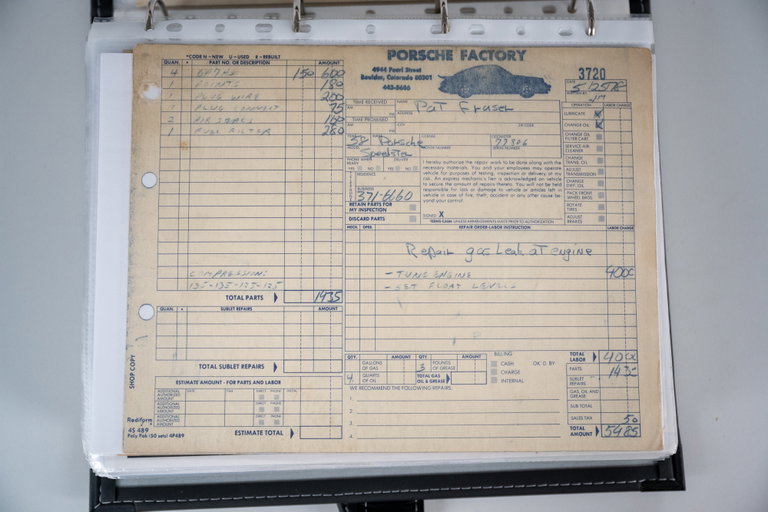 *CODE N - NEW U - USED R - REBUILT
QUAN. * PART NO. OR DESCRIPTION AMOUNT
4 150 600
1 POINTS 180
1 PLUG WIRE 200
1 PLUG CONNECT 75
2 100
1 FUEL FILTER 280
COMPRESSION
135-135-125-125
TOTAL PARTS 1435
QUAN. * SUBLET REPAIRS AMOUNT
TOTAL SUBLET REPAIRS
ESTIMATE AMOUNT - FOR PARTS AND LABOR
ADDITIONAL AUTHORIZED AMOUNT DATE TIME DIRECT PHONE INITIAL
ADDITIONAL AUTHORIZED AMOUNT DIRECT PHONE
ADDITIONAL AUTHORIZED AMOUNT DIRECT PHONE
ESTIMATE TOTAL
SHOP COPY
Rediform
4S 489
Poly Pak (50 sets) 4P489
PORSCHE FACTORY
4944 Pearl Street
Boulder, Colorado 80301
443-5606
3720
DATE 5/25/78
TIME RECEIVED NAME Pat Fraser
AM PM ADDRESS
TIME PROMISED
AM PM CITY ZIP CODE
58 Porsche LICENSE ODOMETER 77806
Speedster MOTOR NUMBER SERIAL NUMBER
PHONE WHEN READY DELIVER
YES NO YES NO
RESIDENCE
BUSINESS
371-6160
RETAIN PARTS FOR MY INSPECTION
DISCARD PARTS
I hereby authorize the repair work to be done along with the
necessary materials. You and your employees may operate
vehicle for purposes of testing, inspection or delivery at my
risk. An express mechanic's lien is acknowledged on vehicle
to secure the amount of repairs thereto. You will not be held
responsible for loss or damage to vehicle or articles left in
vehicle in case of fire, theft, accident or any other cause beyond your control.
SIGNED X
TERMS: CASH UNLESS ARRANGEMENTS MADE PRIOR TO AUTHORIZATION
OPERATION LABOR CHARGE
LUBRICATE
CHANGE OIL
CHANGE OIL FILTER CART.
SERVICE AIR CLEANER
CHANGE TRANS. OIL
ADJUST TRANSMISSION
CHANGE DIFF. OIL
PACK FRONT WHEEL BRGS.
ROTATE TIRES
ADJUST BRAKES
MECH. OPER. REPAIR ORDER-LABOR INSTRUCTION LABOR CHARGE
Repair gas leak at engine
- TUNE ENGINE 4000
- SET FLOAT LEVELS
QTY. AMOUNT QTY. AMOUNT
GALLONS OF GAS 3 POUNDS OF GREASE
4 QUARTS OF OIL TOTAL GAS OIL & GREASE
BILLING
CASH
CHARGE
INTERNAL
OK'D BY
WE RECOMMEND THE FOLLOWING REPAIRS:
1.
2.
3.
4.
TOTAL LABOR 4000
PARTS 1435
SUBLET REPAIRS
GAS, OIL AND GREASE
SUB TOTAL
SALES TAX 50
TOTAL AMOUNT 5485